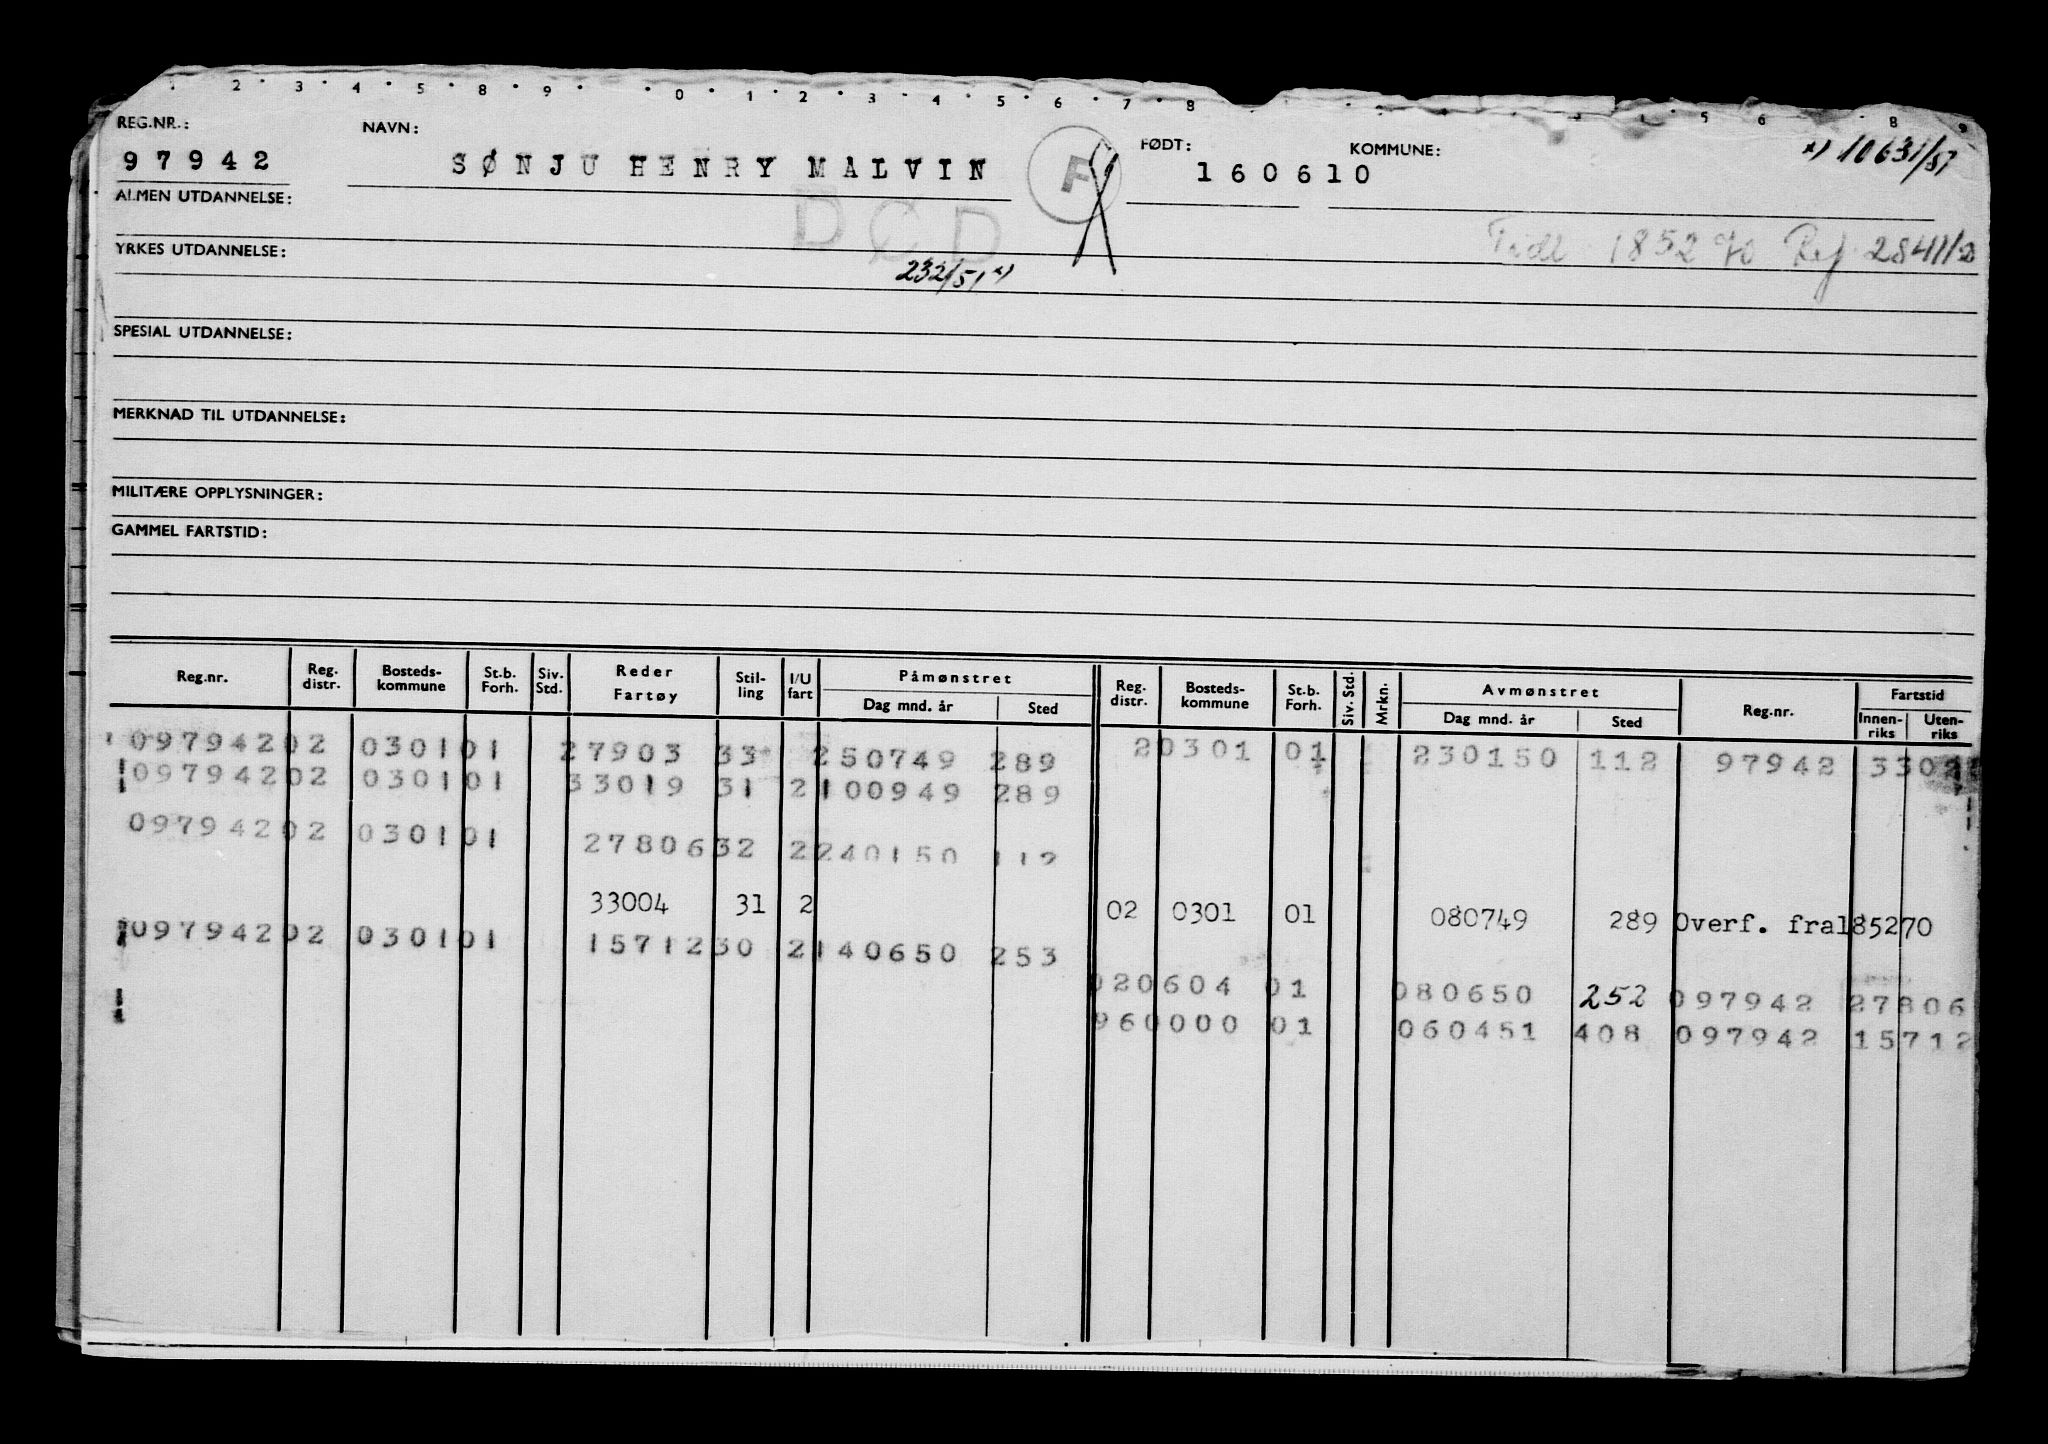 2 3 4 5 8 9 0 1 2 3 4 5 6 7 8 5 6 8 9
REG.NR.: NAVN: FØDT: KOMMUNE: x) 10631/51
97942 SØNJU HENRY MALVIN F 160610
ALMEN UTDANNELSE: DØD
YRKES UTDANNELSE: 232/51 x) Tidl 185270 Ref 28411/2
SPESIAL UTDANNELSE:
MERKNAD TIL UTDANNELSE:
MILITÆRE OPPLYSNINGER:
GAMMEL FARTSTID:
Reg.nr. Reg. distr. Bosteds-kommune St.b. Forh. Siv. Std. Reder Fartøy Stil-ling I/U fart Påmønstret Reg. distr. Bosteds-kommune St.b. Forh. Siv. Std. Mrkn. Avmønstret Reg.nr. Fartstid
Dag mnd. år Sted Dag mnd. år Sted Innen-riks Uten-riks
09794202 030101 27903 33 250749 289 20301 01 230150 112 97942 3302
09794202 030101 33019 31 2100949 289
09794202 030101 2780632 2240150 112
33004 31 2 02 0301 01 080749 289 Overf. fra185270
09794202 030101 1571230 2140650 253
020604 01 080650 252 097942 27806
960000 01 060451 408 097942 15712